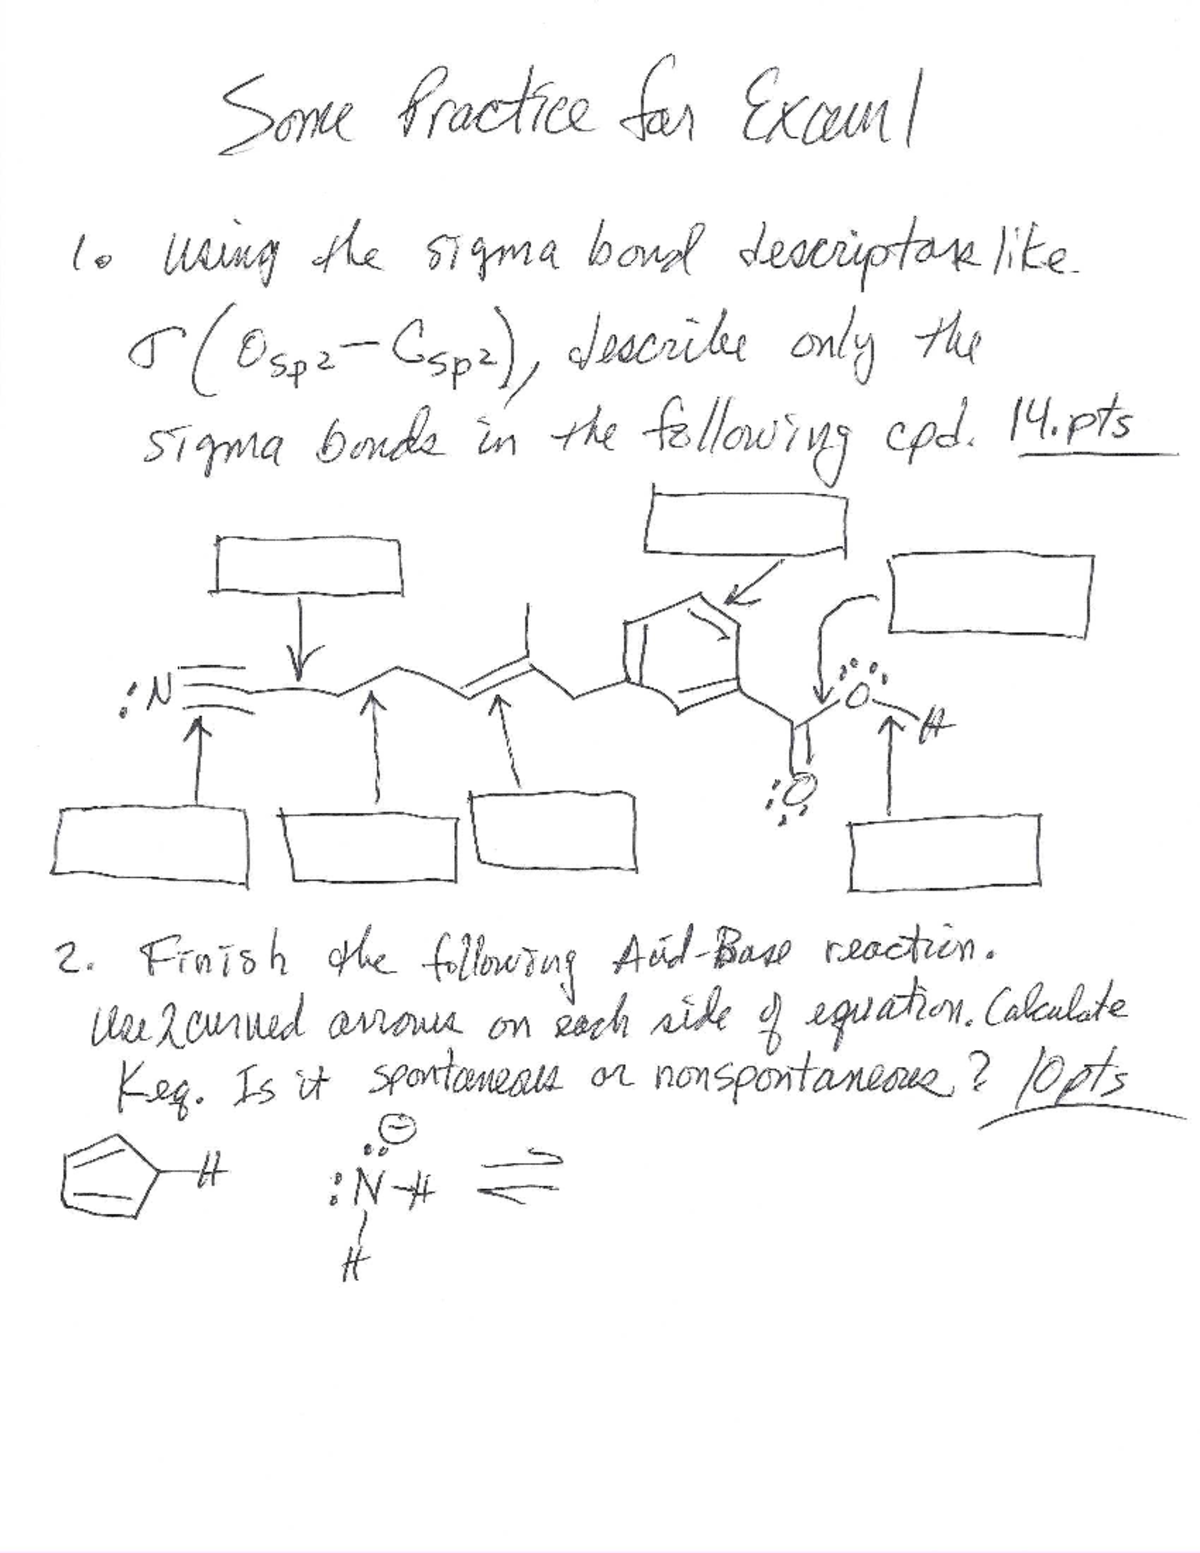 Some Practice for Exam 1
1. Using the sigma bond descriptors like
σ(Osp2-Csp2), describe only the
sigma bonds in the following cpd. 14.pts
:N
O
H
:O
2. Finish the following Acid-Base reaction.
Use 2 curved arrows on each side of equation. Calculate
Keq. Is it spontaneous or nonspontaneous? 10pts
H
:N-H
H